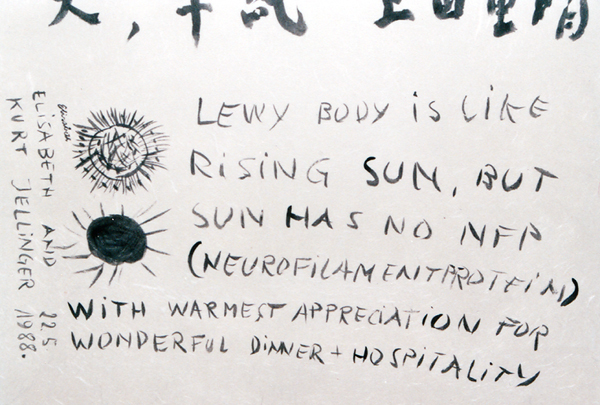 LEWY BODY iS LIKE
RiSiNG SUN, BUT
SUN HAS NO NFP
(NEUROFILAMENTPROTEIN)
WITH WARMEST APPRECIATION FOR
WONDERFUL DINNER + HOSPITALITY
Elisabeth
ELISABETH AND 22 5
KURT JELLINGER 1988.